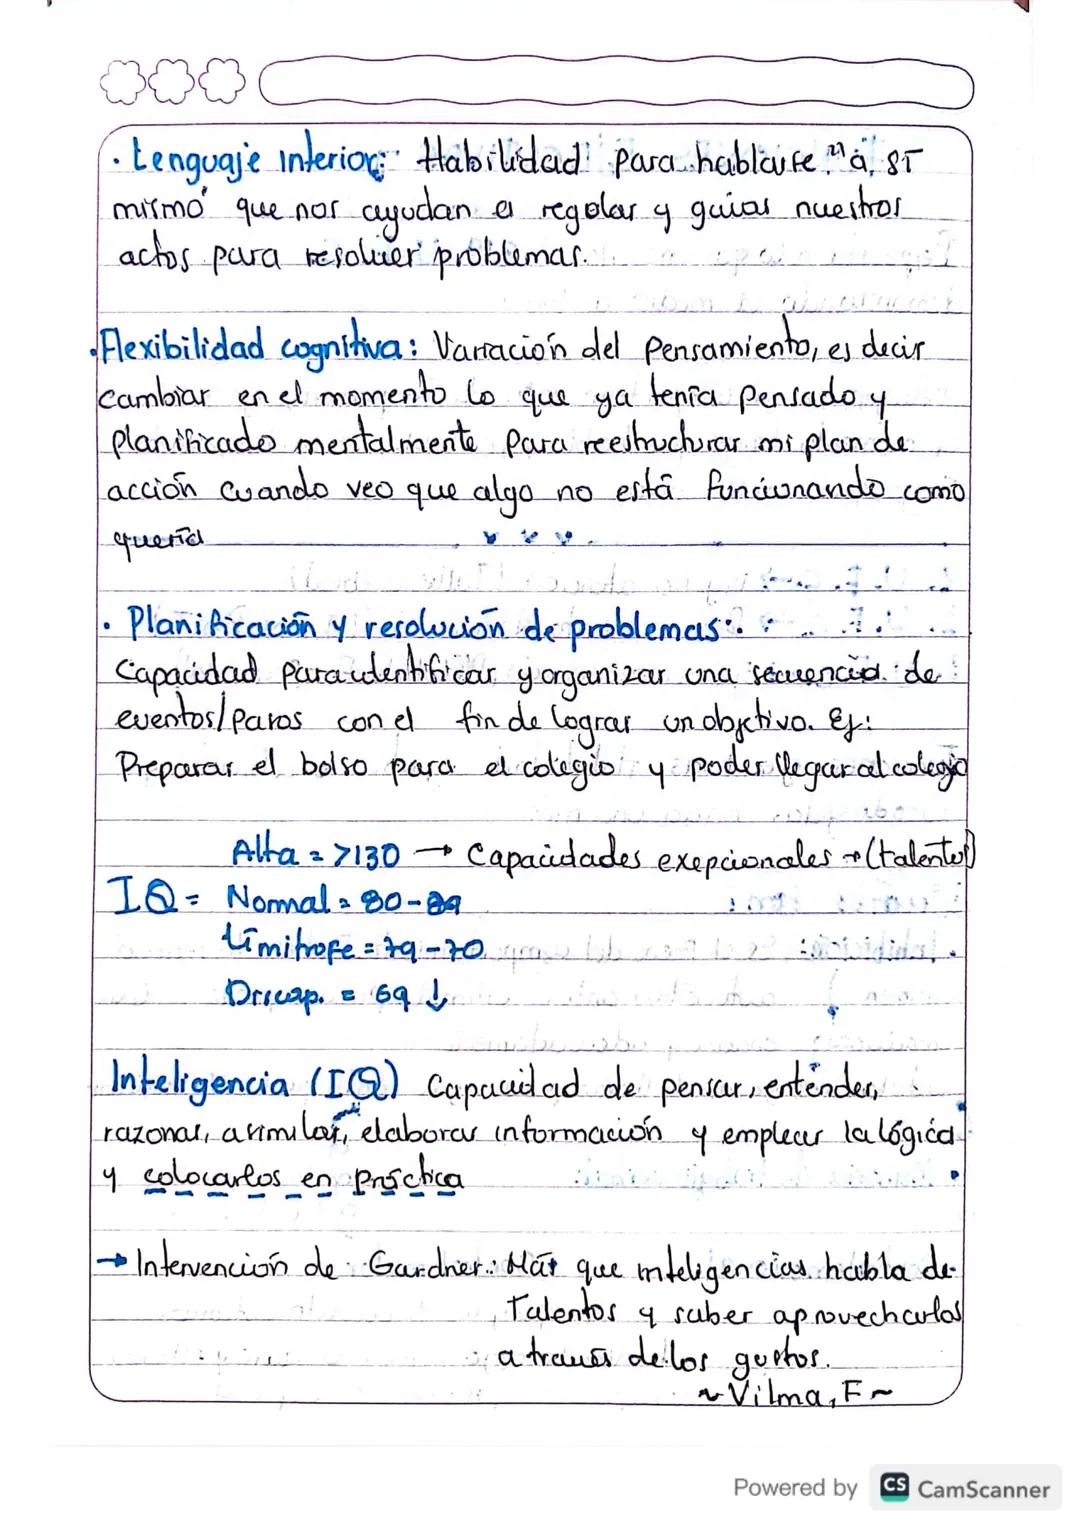 · Lenguaje interior: Habilidad para hablarse "a sí
mismo" que nos ayudan a regular y guiar nuestros
actos para resolver problemas.
· Flexibilidad cognitiva: Variación del Pensamiento, es decir
Cambiar en el momento lo que ya tenía Pensado y
planificado mentalmente Para reestructurar mi plan de
acción cuando veo que algo no está funcionando como
quería
· Planificación y resolución de problemas:
Capacidad para identificar y organizar una secuencia de
eventos/pasos con el fin de lograr un objetivo. Ej:
Preparar el bolso para el colegio y poder llegar al colegio
Alta = >130 → Capacidades exepcionales → (talentos)
IQ = Normal = 80-89
Límitrofe = 79-70
Discap. = 69 ↓
Inteligencia (IQ) Capacidad de pensar, entender,
razonar, asimilar, elaborar información y emplear la lógica
y colocarlos en práctica
→ Intervención de Gardner: Más que inteligencias habla de
Talentos y saber aprovecharlos
a través de los gustos.
~ Vilma, F ~
Powered by CS CamScanner